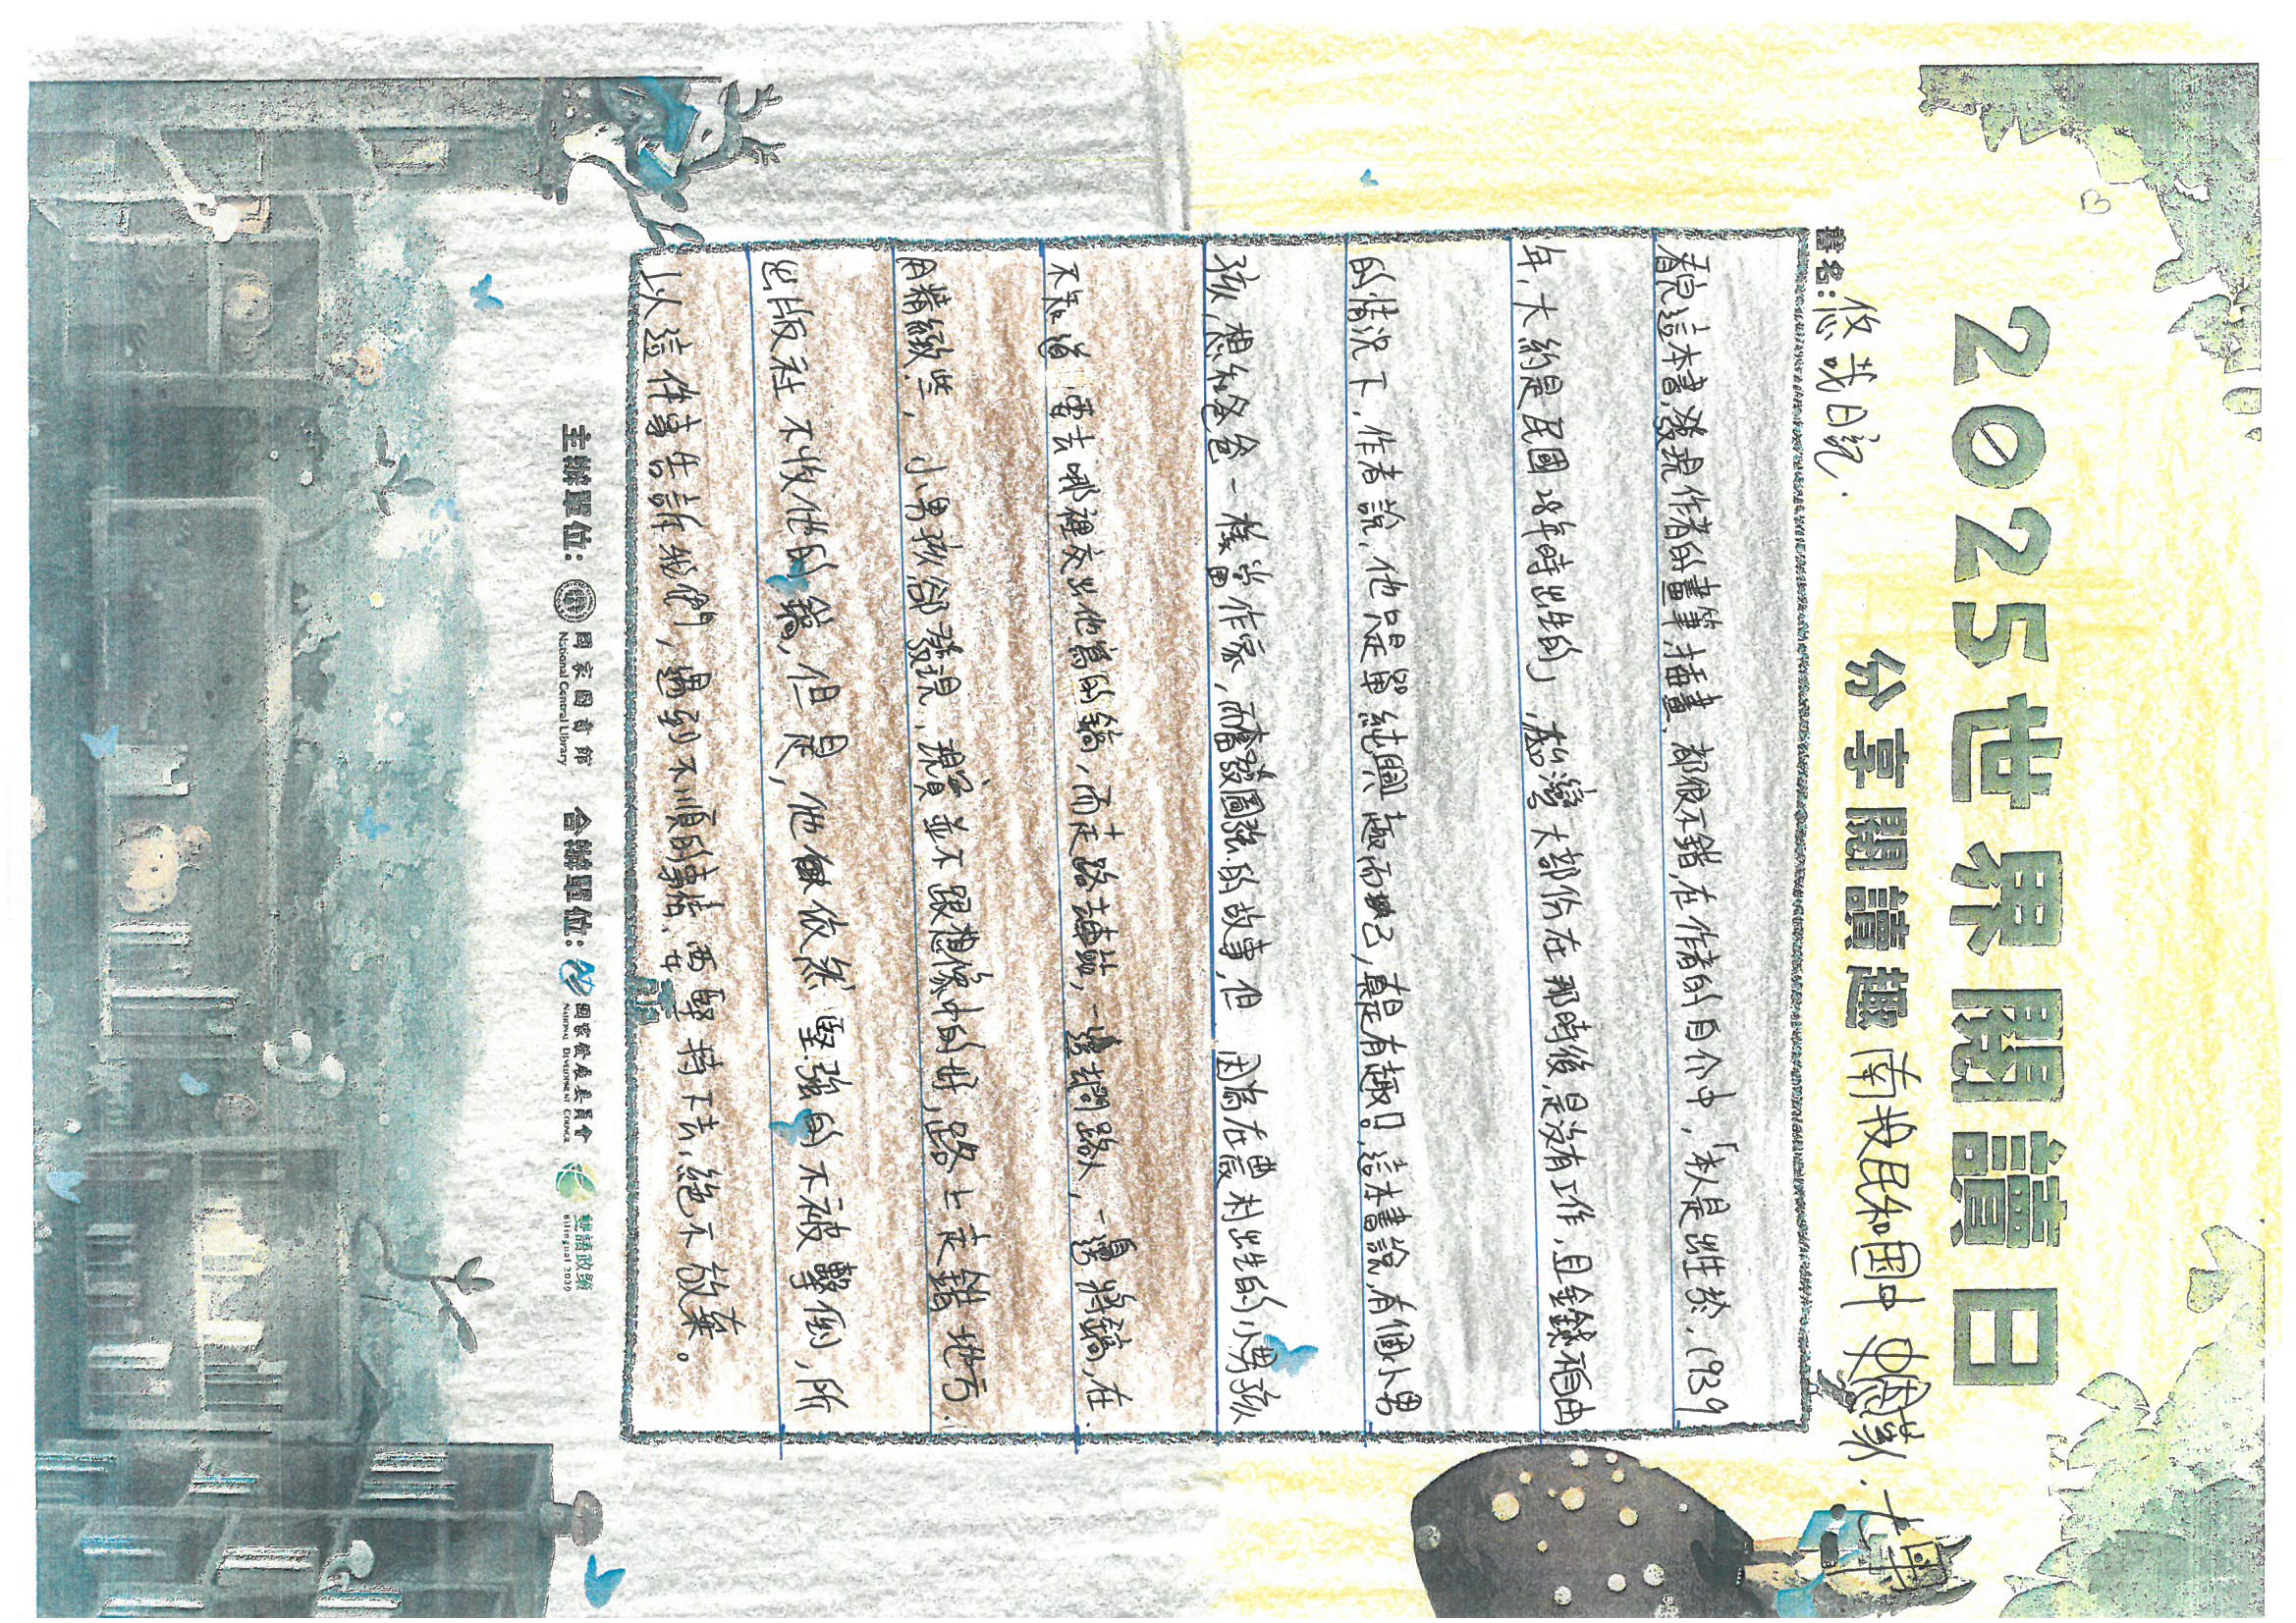 2025世界閱讀日
分享閱讀趣 南投民和國中
書名:悠哉日記.
看完這本書,發現作者的畫筆,插畫,都很不錯,在作者的自介中,「本人是出生於,1939
年,大約是民國28年時出生的」,在台灣大部份在那時後,是沒有工作,且金錢不自由
的情況下,作者說,他只是單純興趣而已,真是有趣的。這本書說,有個小男
孩,想和爸爸一樣當作家,而奮發圖強的故事,但 因為在農村出生的小男孩
不知道 要去哪裡交出他寫的稿,而走路去,一邊問路人,一邊將稿,在
用精緻些,小男孩卻發現,現實並不跟想像中的一樣,路上走錯地方.
出版社不收他的稿,但是,他依然堅強的不被擊倒,所
以這件事告訴我們,遇到不順的事情,要堅持下去,絕不放棄。
主辦單位: 國家圖書館 National Central Library 合辦單位: 國家發展委員會 NATIONAL DEVELOPMENT COUNCIL 雙語政策 Bilingual 2030